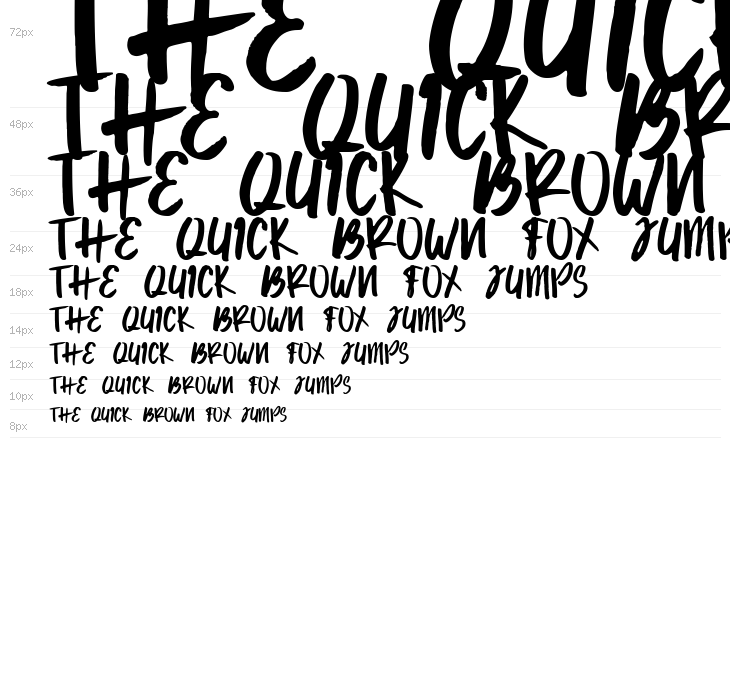 72px THE QUICK
48px THE QUICK BR
36px THE QUICK BROWN
24px THE QUICK BROWN FOX JUMP
18px THE QUICK BROWN FOX JUMPS
14px THE QUICK BROWN FOX JUMPS
12px THE QUICK BROWN FOX JUMPS
10px THE QUICK BROWN FOX JUMPS
8px THE QUICK BROWN FOX JUMPS